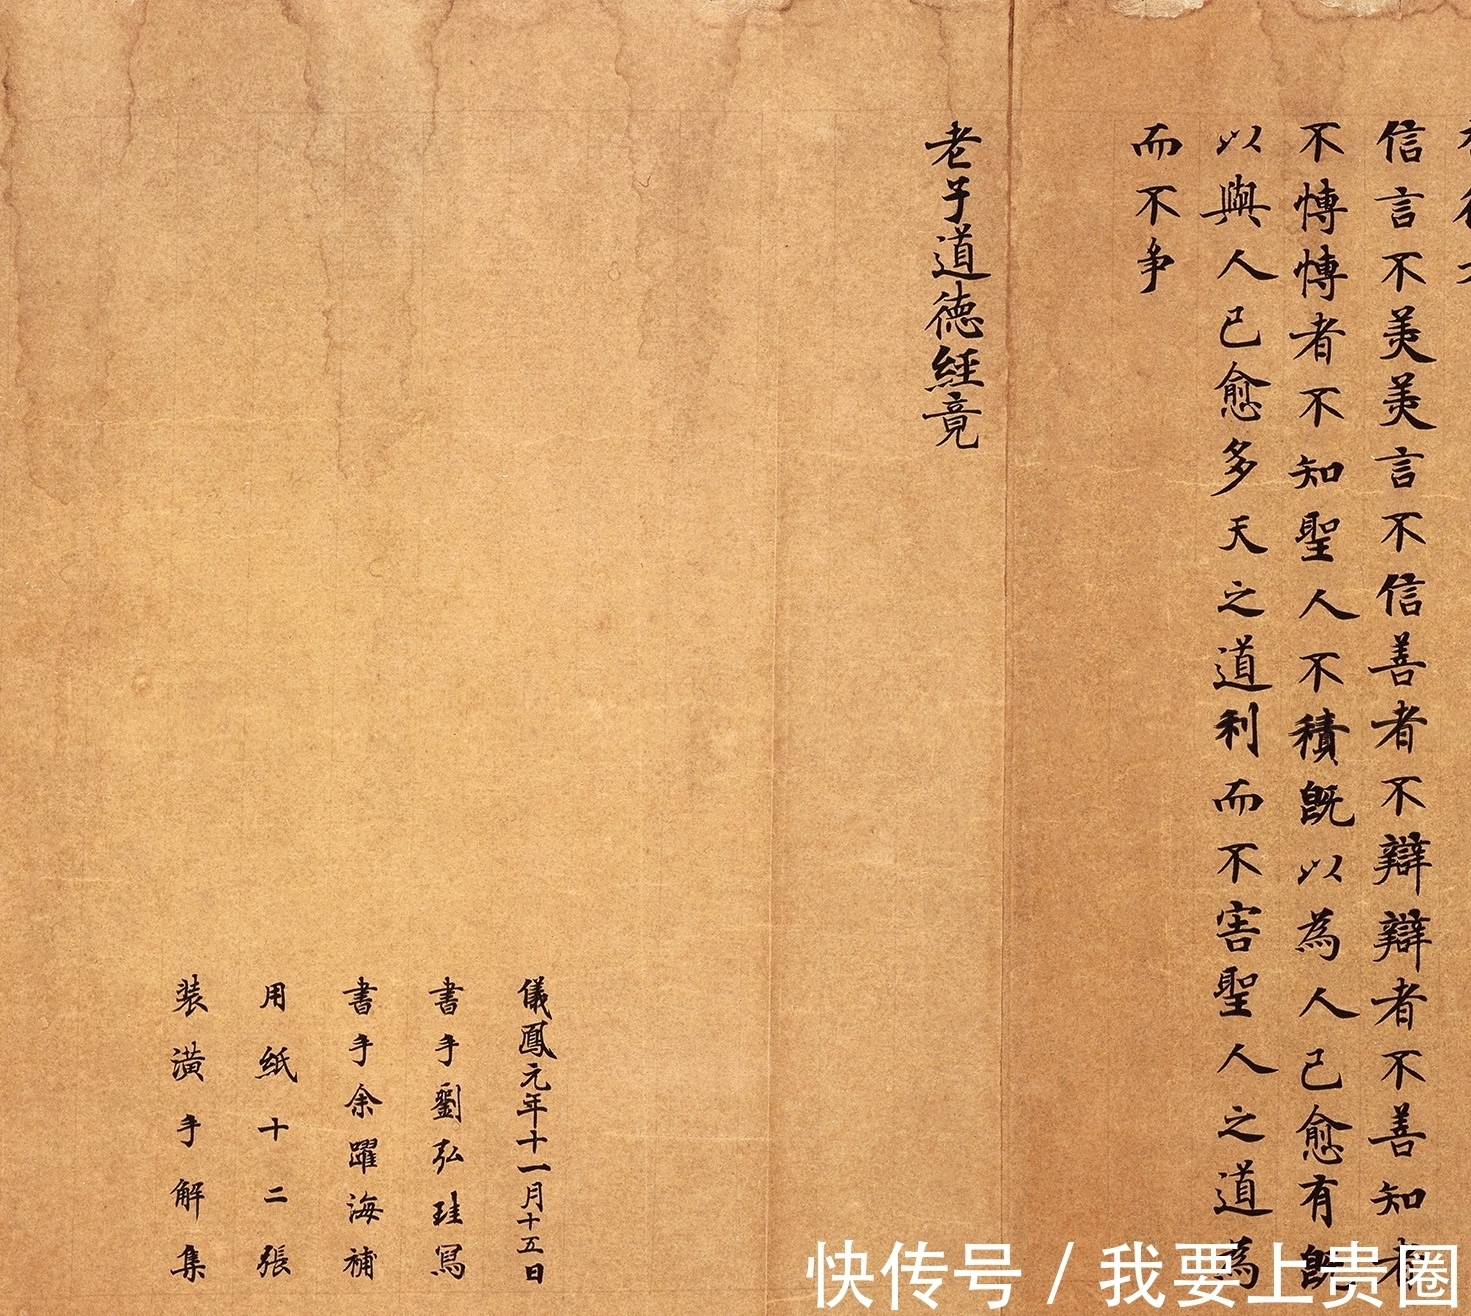 信言不美美言不信善者不辯辯者不善知者
不愽愽者不知聖人不積既以為人已愈有既
以與人已愈多天之道利而不害聖人之道為
而不争
老子道德經竟
儀鳳元年十一月十五日
書手劉弘珪寫
書手余躍海補
用紙十二張
装潢手解集
快传号 / 我要上贵圈